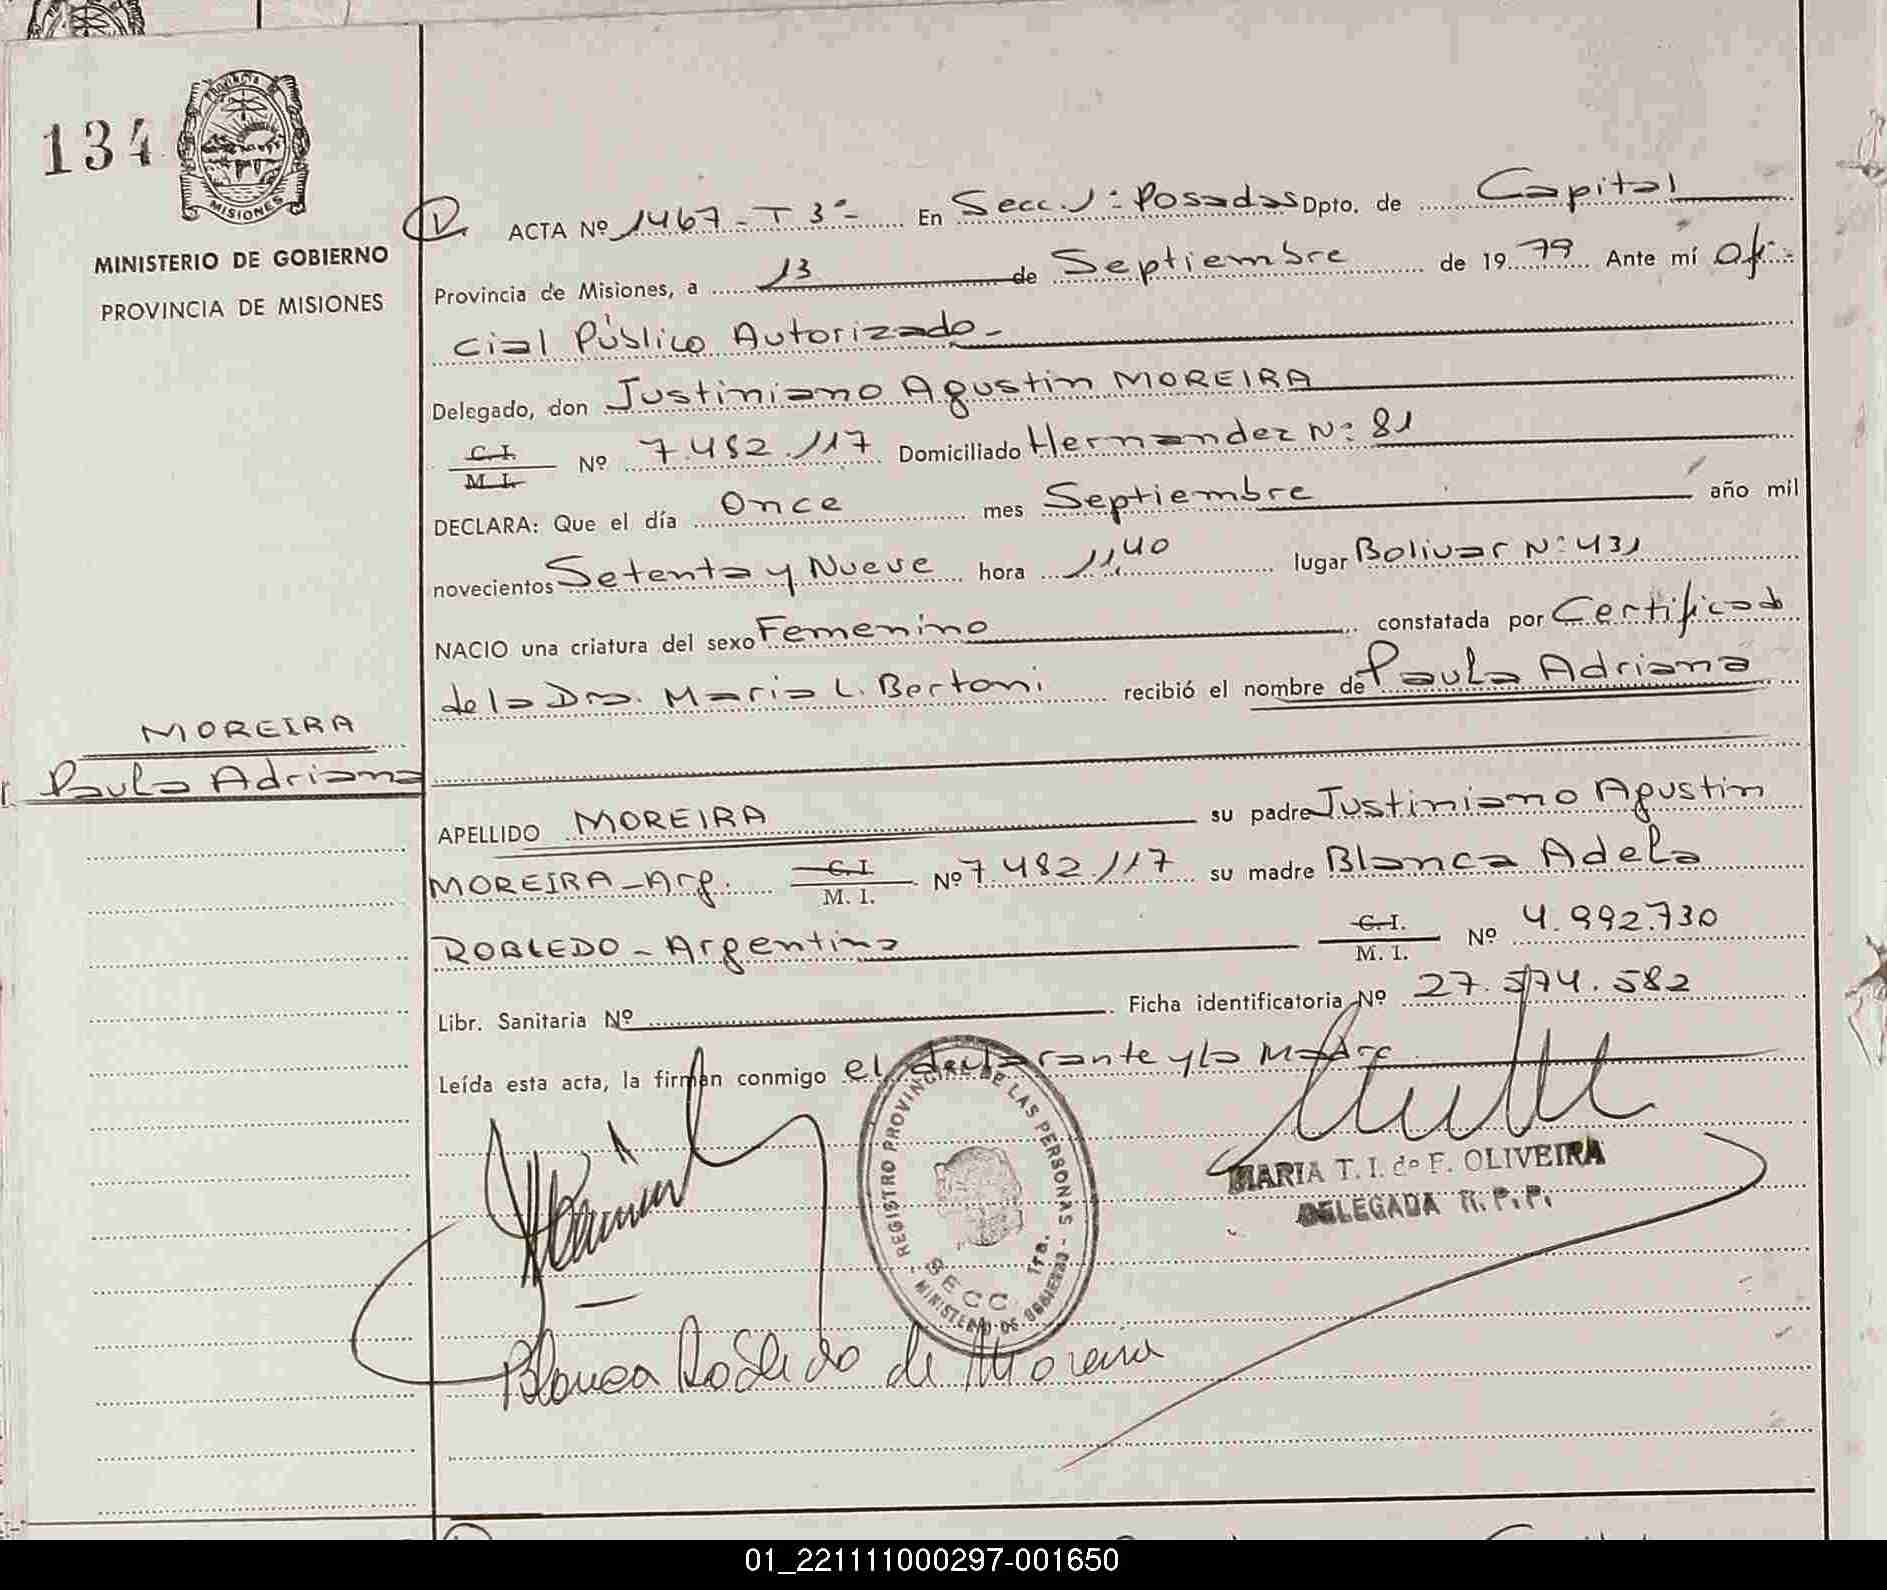 134
PROVINCIA DE
MISIONES
MINISTERIO DE GOBIERNO
PROVINCIA DE MISIONES
MOREIRA
Paula Adriana
ACTA Nº 1467 - T 3º - En Secc. 1: Posadas Dpto. de Capital
Provincia de Misiones, a 13 de Septiembre de 1979 Ante mí Ofi-
cial Público Autorizado -
Delegado, don Justiniano Agustin MOREIRA
C. I. M. I. Nº 7.482.117 Domiciliado Hernandez Nº: 81
DECLARA: Que el día Once mes Septiembre año mil
novecientos Setenta y Nueve hora 11,40 lugar Bolivar Nº: 431
NACIO una criatura del sexo Femenino constatada por Certificado
de la Dra. Maria L. Bertoni recibió el nombre de Paula Adriana
APELLIDO MOREIRA su padre Justiniano Agustin
MOREIRA - Arg. C. I. M. I. Nº 7.482.117 su madre Blanca Adela
ROBLEDO - Argentina C. I. M. I. Nº 4.992.730
Libr. Sanitaria Nº Ficha identificatoria Nº 27.574.582
Leída esta acta, la firman conmigo el declarante y la Madre
REGISTRO PROVINCIAL DE LAS PERSONAS - MINISTERIO DE GOBIERNO -
SECC. 1ra.
MARIA T. I. de F. OLIVEIRA
DELEGADA R. P. P.
Blanca Robledo de Moreira
01_221111000297-001650